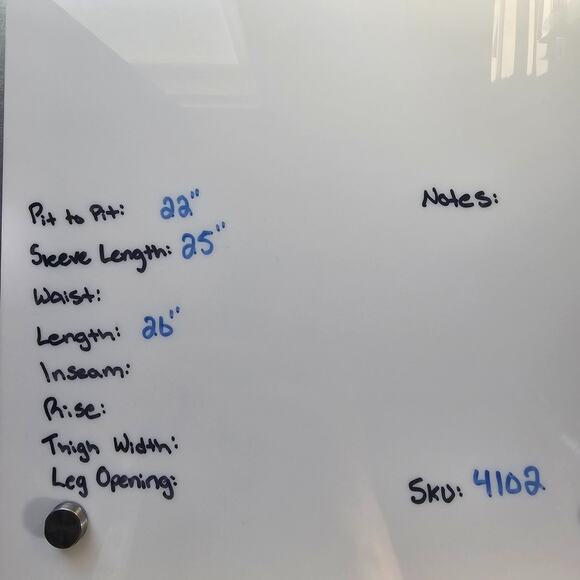 Pit to Pit: 22"
Sleeve Length: 25"
Waist:
Length: 26"
Inseam:
Rise:
Thigh Width:
Leg Opening:
Notes:
SKU: 4102